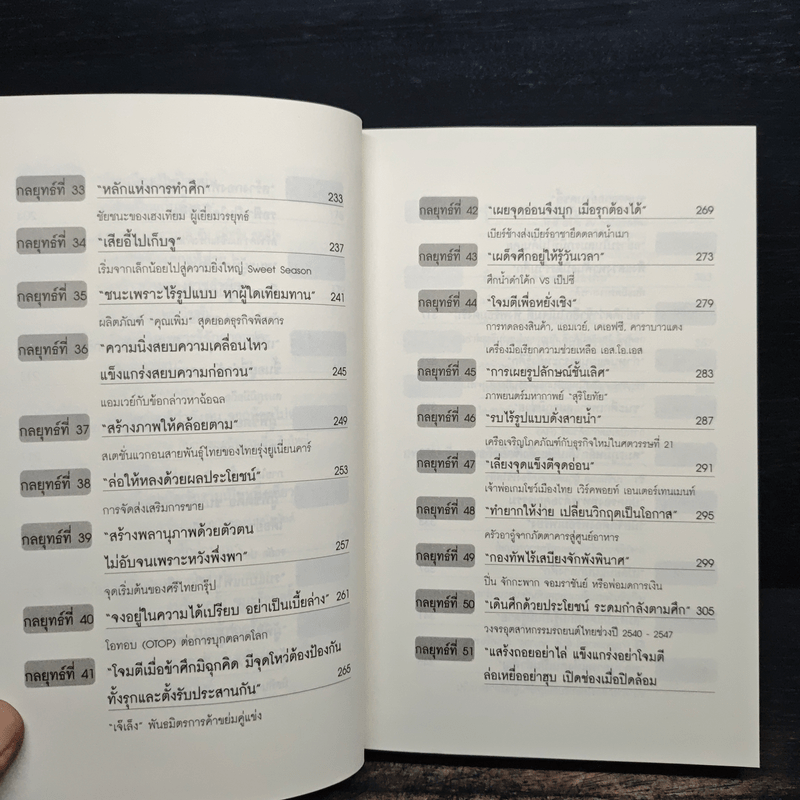 กลยุทธ์ที่ 33 "หลักแห่งการทำศึก" 233
ชัยชนะของเฮงเทียม ผู้เยี่ยมวรยุทธ์
กลยุทธ์ที่ 34 "เสียอี้ไปเก็บจู" 237
เริ่มจากเล็กน้อยไปสู่ความยิ่งใหญ่ Sweet Season
กลยุทธ์ที่ 35 "ชนะเพราะไร้รูปแบบ หาผู้ใดเทียมทาน" 241
ผลิตภัณฑ์ "คุณเพิ่ม" สุดยอดธุรกิจพิสดาร
กลยุทธ์ที่ 36 "ความนิ่งสยบความเคลื่อนไหว
แข็งแกร่งสยบความก่อกวน" 245
แอมเวย์กับข้อกล่าวหาฉ้อฉล
กลยุทธ์ที่ 37 "สร้างภาพให้คล้อยตาม" 249
สเตชั่นแวกอนสายพันธุ์ไทยของไทยรุ่งยูเนี่ยนคาร์
กลยุทธ์ที่ 38 "ล่อให้หลงด้วยผลประโยชน์" 253
การจัดส่งเสริมการขาย
กลยุทธ์ที่ 39 "สร้างพลานุภาพด้วยตัวตน
ไม่อับจนเพราะหวังพึ่งพา" 257
จุดเริ่มต้นของศรีไทยกรุ๊ป
กลยุทธ์ที่ 40 "จงอยู่ในความได้เปรียบ อย่าเป็นเบี้ยล่าง" 261
โอทอบ (OTOP) ต่อการบุกตลาดโลก
กลยุทธ์ที่ 41 "โจมตีเมื่อข้าศึกมิฉุกคิด มีจุดโหว่ต้องป้องกัน
ทั้งรุกและตั้งรับประสานกัน" 265
"เจ๊เล้ง" พันธมิตรการค้าขย่มคู่แข่ง
กลยุทธ์ที่ 42 "เผยจุดอ่อนจึงบุก เมื่อรุกต้องได้" 269
เบียร์ช้างส่งเบียร์อาชายึดตลาดน้ำเมา
กลยุทธ์ที่ 43 "เผด็จศึกอยู่ให้รู้วันเวลา" 273
ศึกน้ำดำโค้ก VS เป๊ปซี่
กลยุทธ์ที่ 44 "โจมตีเพื่อหยั่งเชิง" 279
การทดลองสินค้า, แอมเวย์, เคเอฟซี, คาราบาวแดง
เครื่องมือเรียกความช่วยเหลือ เอส.โอ.เอส
กลยุทธ์ที่ 45 "การเผยรูปลักษณ์ชั้นเลิศ" 283
ภาพยนตร์มหากาพย์ "สุริโยทัย"
กลยุทธ์ที่ 46 "รบไร้รูปแบบดั่งสายน้ำ" 287
เครือเจริญโภคภัณฑ์กับธุรกิจใหม่ในศตวรรษที่ 21
กลยุทธ์ที่ 47 "เลี่ยงจุดแข็งตีจุดอ่อน" 291
เจ้าพ่อเกมโชว์เมืองไทย เวิร์คพอยท์ เอนเตอร์เทนเมนท์
กลยุทธ์ที่ 48 "ทำยากให้ง่าย เปลี่ยนวิกฤตเป็นโอกาส" 295
ครัวอารู่จากภัตตาคารสู่ศูนย์อาหาร
กลยุทธ์ที่ 49 "กองทัพไร้เสบียงจักพังพินาศ" 299
ปิ่น จักกะพาก จอมราชันย์ หรือพ่อมดการเงิน
กลยุทธ์ที่ 50 "เดินศึกด้วยประโยชน์ ระดมกำลังตามศึก" 305
วงจรอุตสาหกรรมรถยนต์ไทยช่วงปี 2540 - 2547
กลยุทธ์ที่ 51 "แสร้งถอยอย่าไล่ แข็งแกร่งอย่าโจมตี
ล่อเหยื่ออย่าฮุบ เปิดช่องเมื่อปิดล้อม